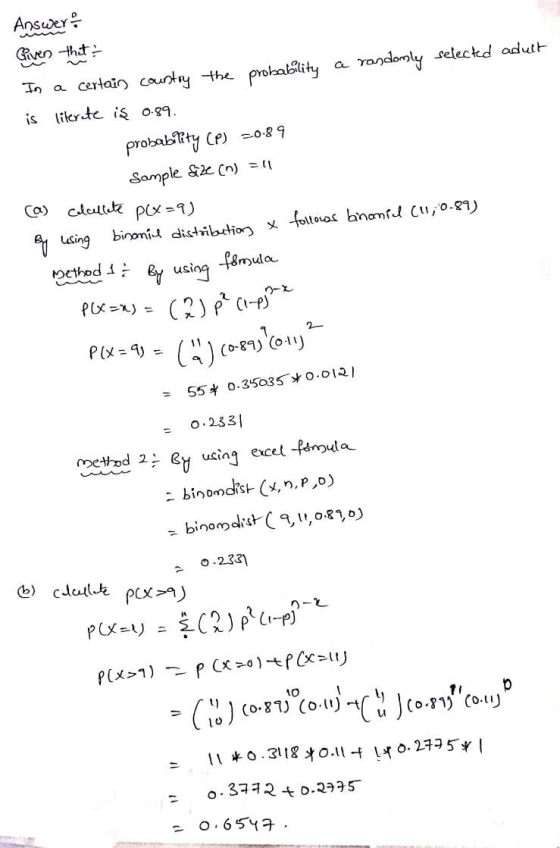 Answer:-
Given that :-
In a certain country the probability a randomly selected adult
is literate is 0.89.
probability (p) = 0.89
Sample Size (n) = 11
(a) calculate p(x = 9)
By using binomial distribution x follows binomial (11, 0.89)
Method 1 :- By using formula
P(X=x) = (n x) p^x (1-p)^n-x
P(X=9) = (11 9) (0.89)^9 (0.11)^2
= 55 * 0.35035 * 0.0121
= 0.2331
method 2 :- By using excel formula
= binomdist (x, n, P, 0)
= binomdist (9, 11, 0.89, 0)
= 0.2331
(b) calculate p(x>9)
P(X=x) = Σ (n x) p^x (1-p)^n-x
P(X>9) = P(X=10) + P(X=11)
= (11 10) (0.89)^10 (0.11)^1 + (11 11) (0.89)^11 (0.11)^0
= 11 * 0.3118 * 0.11 + 1 * 0.2775 * 1
= 0.3772 + 0.2775
= 0.6547.